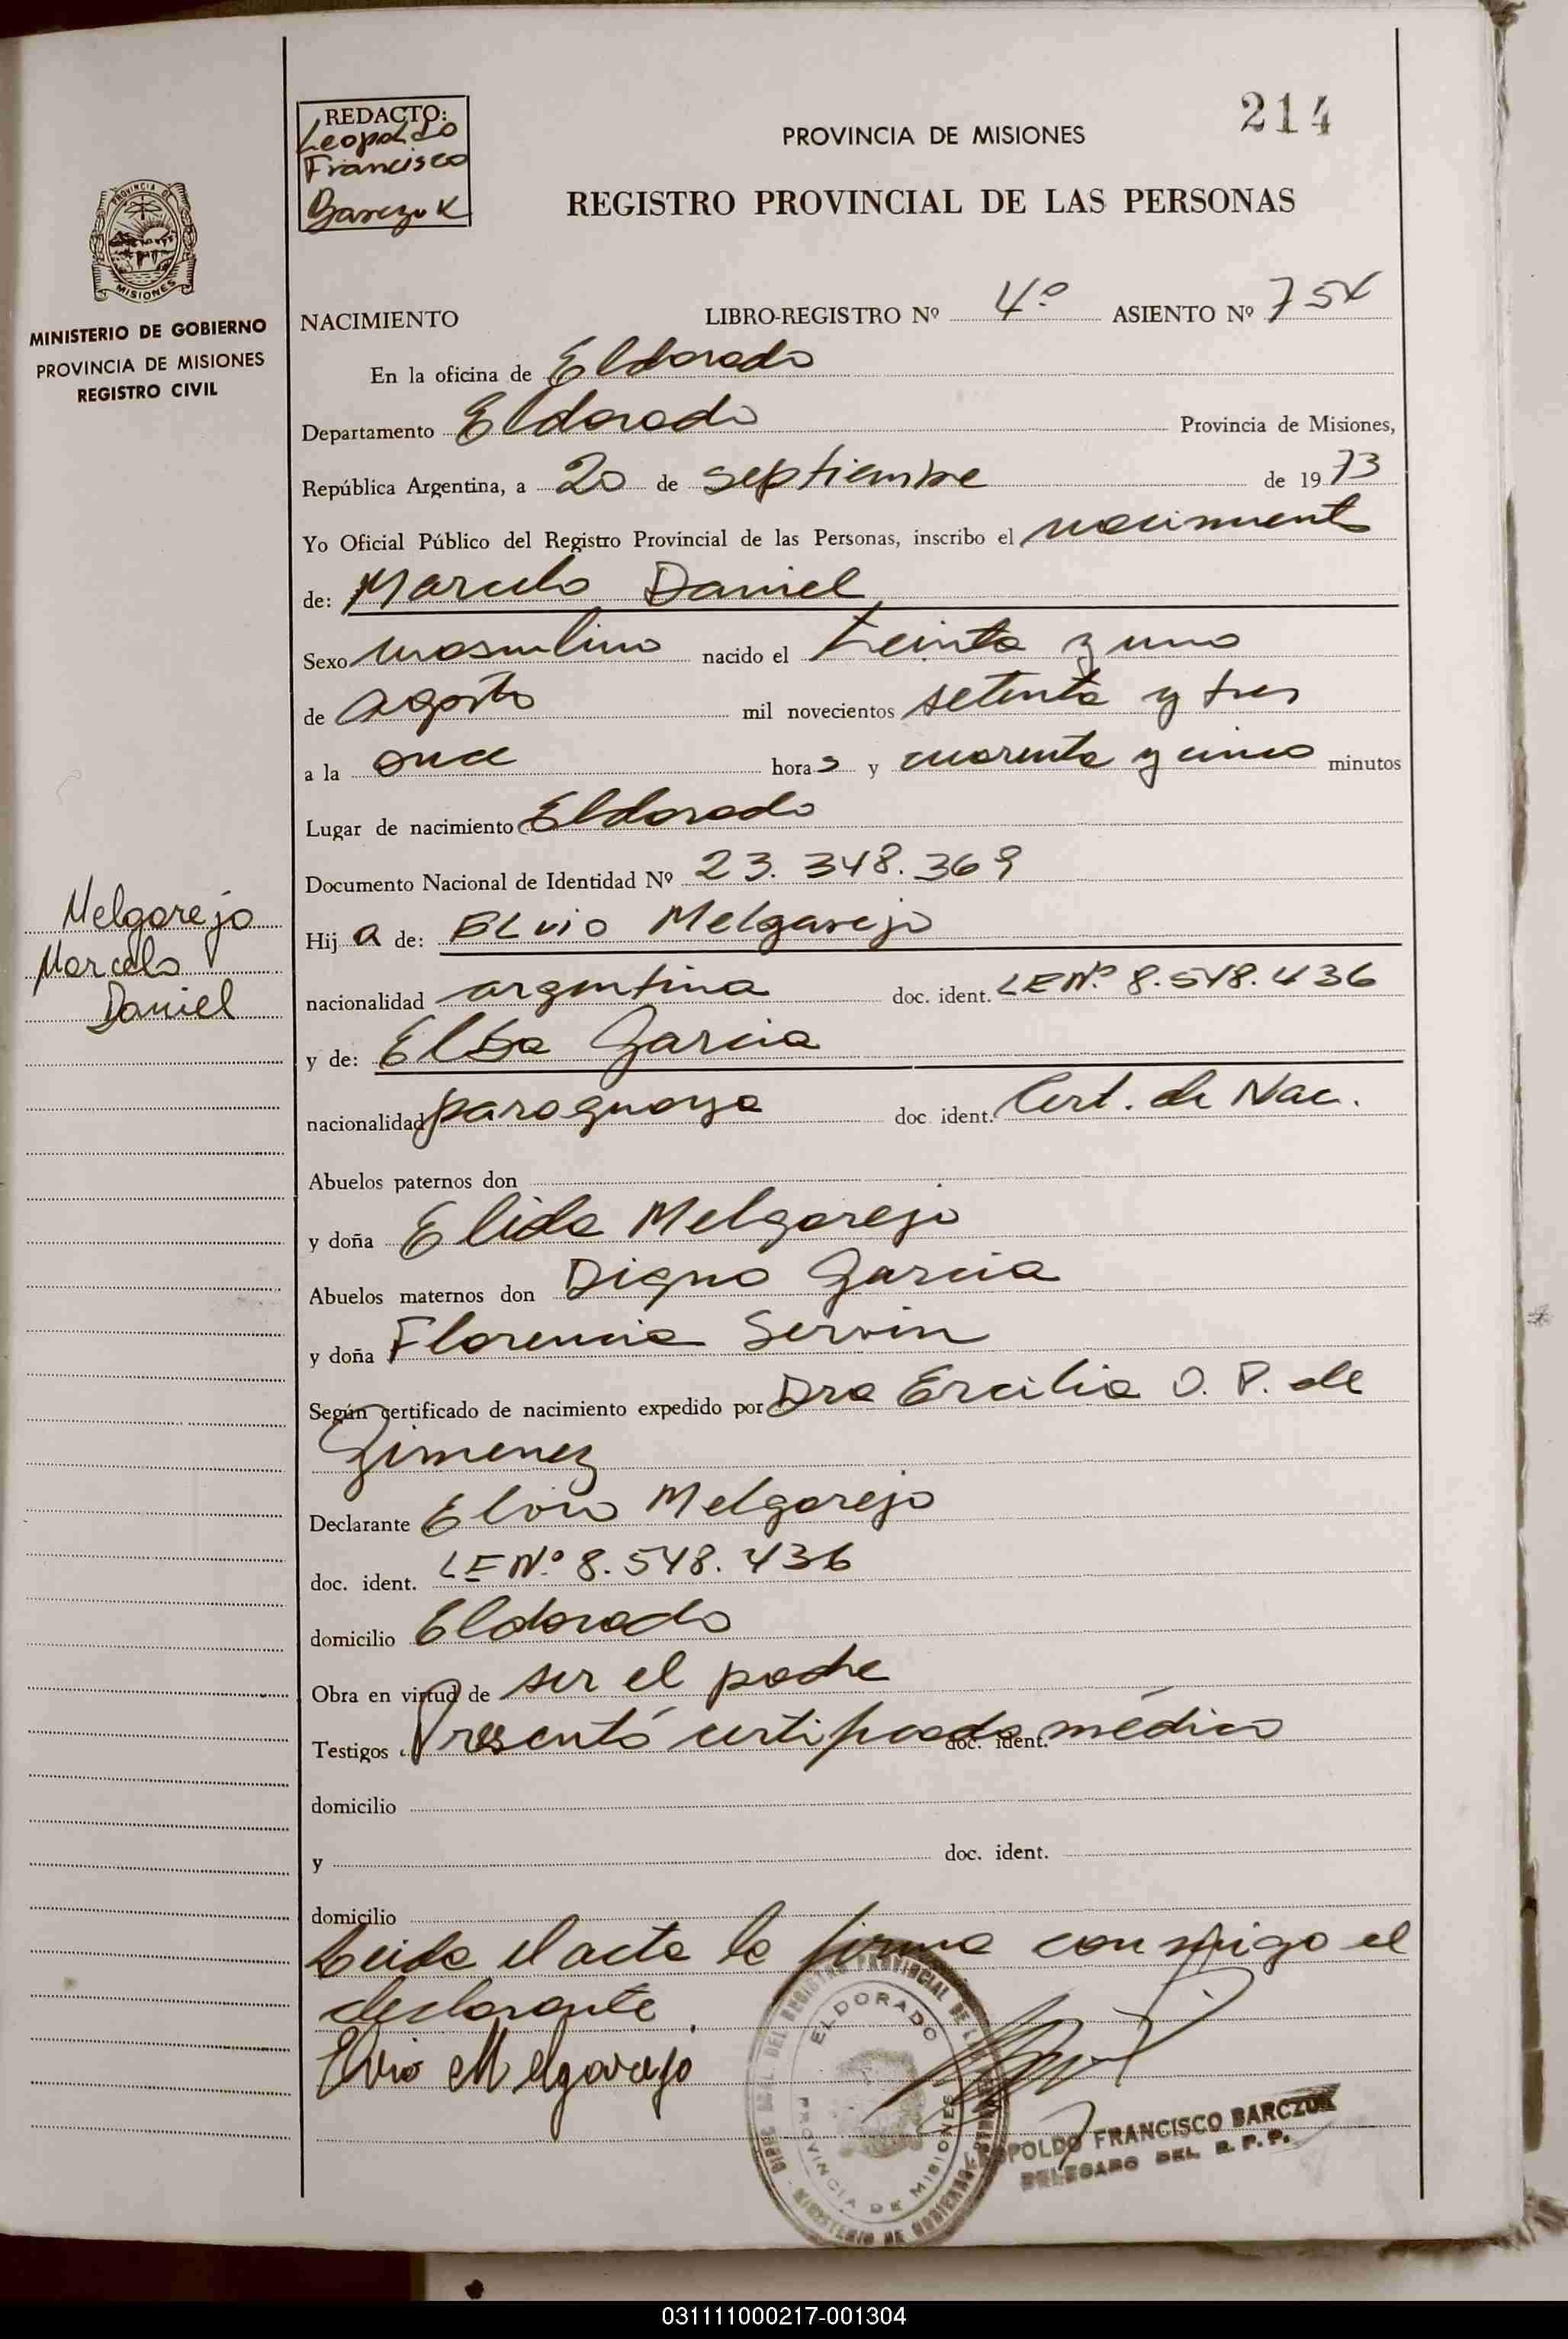 214
REDACTO:
Leopoldo
Francisco
Barczuk
PROVINCIA DE MISIONES
REGISTRO PROVINCIAL DE LAS PERSONAS
PROVINCIA DE
MISIONES
MINISTERIO DE GOBIERNO
PROVINCIA DE MISIONES
REGISTRO CIVIL
NACIMIENTO LIBRO-REGISTRO Nº 4º ASIENTO Nº 754
En la oficina de Eldorado
Departamento Eldorado Provincia de Misiones,
República Argentina, a 20 de septiembre de 1973
Yo Oficial Público del Registro Provincial de las Personas, inscribo el nacimiento
de: Marcelo Daniel
Sexo masculino nacido el treinta y uno
de agosto mil novecientos setenta y tres
a la once horas y cuarenta y cinco minutos
Lugar de nacimiento Eldorado
Documento Nacional de Identidad Nº 23.348.369
Melgarejo
Marcelo
Daniel
Hij a de: ELvio Melgarejo
nacionalidad argentina doc. ident. LENº 8.548.436
y de: Elba Garcia
nacionalidad paraguaya doc. ident. Cert. de Nac.
Abuelos paternos don
y doña Elida Melgarejo
Abuelos maternos don Digno Garcia
y doña Florencia Servin
Según certificado de nacimiento expedido por Dra Ercilia O. P. de
Gimenez
Declarante Elvio Melgarejo
doc. ident. LENº 8.548.436
domicilio Eldorado
Obra en virtud de ser el padre
Testigos Presentó certificado doc. ident. médico
domicilio
y doc. ident.
domicilio
Leida el acta la firma conmigo el
declarante.
Elvio Melgarejo
ELDORADO
PROVINCIA DE MISIONES
LEOPOLDO FRANCISCO BARCZUK
DELEGADO DEL R. P. P.
031111000217-001304